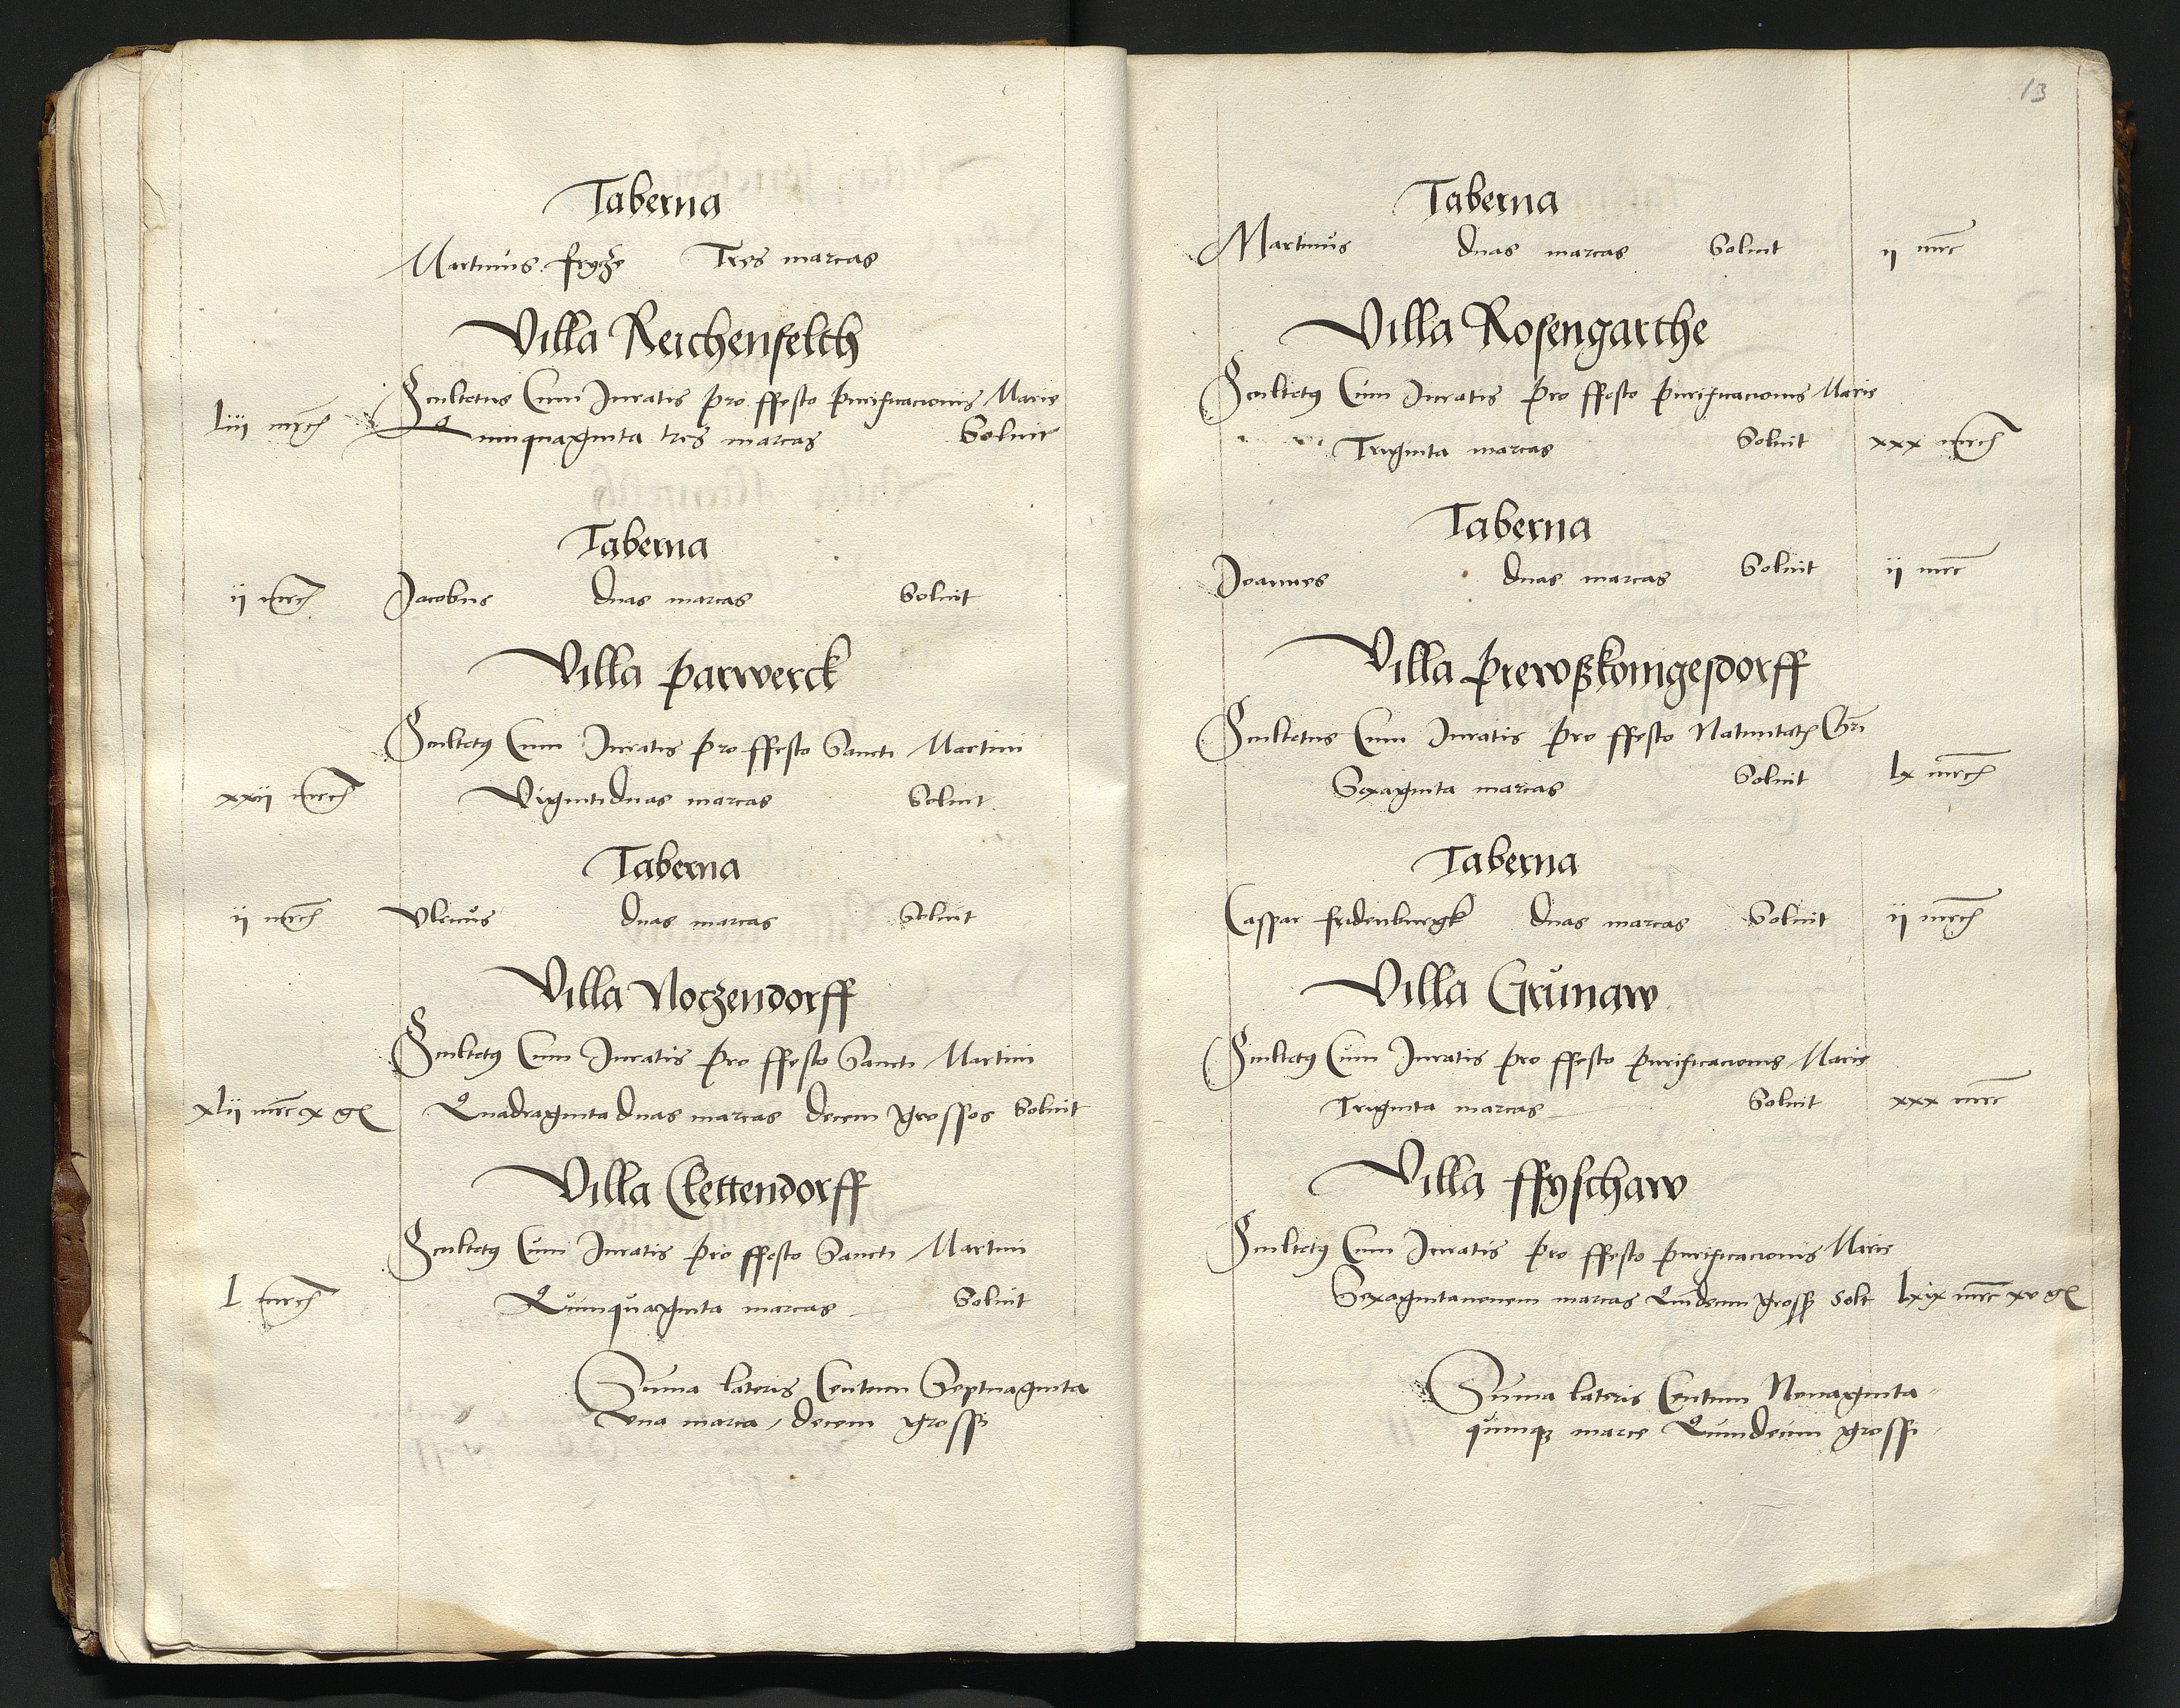 Taberna
Martinus frycze Tres marcas
Villa Reichenfelth
Scultetus Cum Juratis pro ffesto purificacionis Marie
liii mrc Quinquaginta tres marcas Soluit
Taberna
ii mrc Jacobus duas marcas Soluit
Villa parwerck
Scultetus Cum Juratis pro ffesto Sancti Martini
xxii mrc Vigintiduas marcas Soluit
Taberna
ii mrc duas marcas Soluit
Villa Noczendorff
Scultetus Cum Juratis pro ffesto Sancti Martini
xlii mrc x gr Quadragintaduas marcas decem grossos Soluit
Villa Clettendorff
Scultetus Cum Juratis pro ffesto Sancti Martini
l mrc Quinquaginta marcas Soluit
Suma lateris Centum Septuaginta
una marca, decem grossi
13
Taberna
Martinus duas marcas Soluit ii mrc
Villa Rosengarthe
Scultetus Cum Juratis pro ffesto purificacionis Marie
Triginta marcas Soluit xxx mrc
Taberna
Joannes duas marcas Soluit ii mrc
Villa prewßkonigesdorff
Scultetus Cum Juratis pro ffesto Natiuitatis
Sexaginta marcas Soluit lx mrc
Taberna
Caspar fridenburgk duas marcas Soluit ii mrc
Villa Grunaw
Scultetus Cum Juratis pro ffesto purificacionis Marie
Triginta marcas Soluit xxx mrc
Villa ffyschaw
Scultetus Cum Juratis pro ffesto purificacionis Marie
Sexagintanouem marcas Quindecim gross Solt lxix mrc xv gr
Suma lateris Centum Nonaginta
quinque marce Quindecim grossi